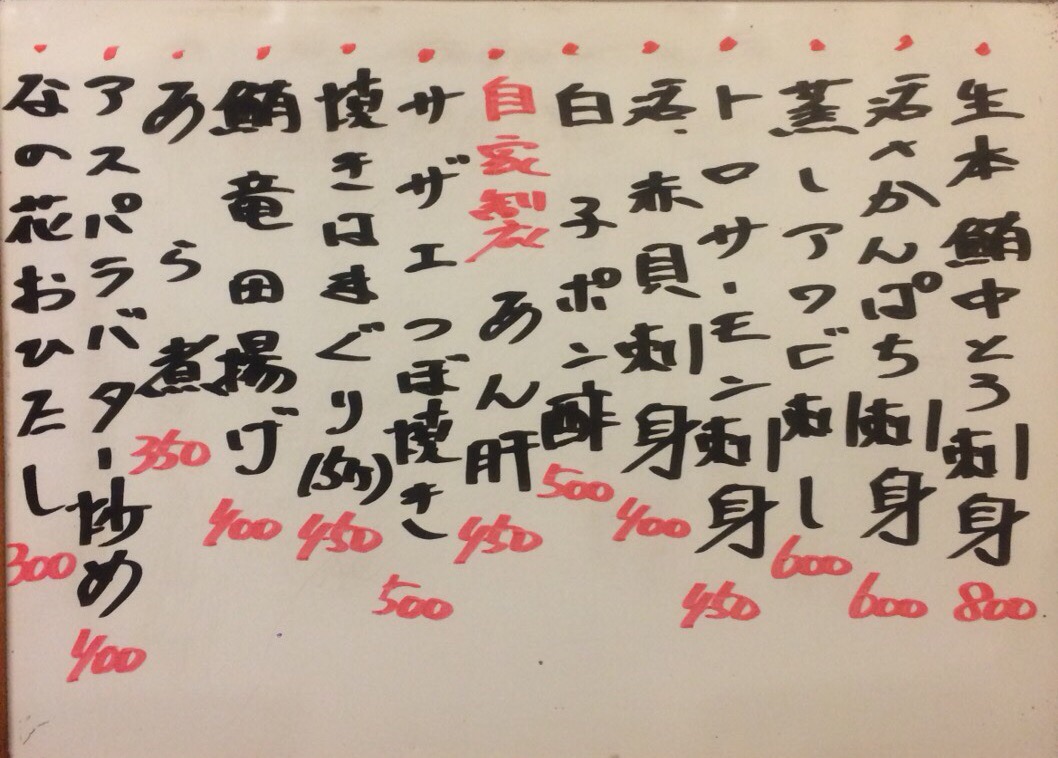 ・生本鮪中とろ刺身 800
・活〆かんぱち刺身 600
・蒸しアワビ刺し 600
・トロサーモン刺身 450
・活・赤貝刺身 400
・白子ポン酢 500
・自家製あん肝 450
・サザエつぼ焼き 500
・焼きはまぐり(5ケ) 450
・鮪竜田揚げ 400
・あら煮 350
・アスパラバター炒め 400
・なの花おひたし 300